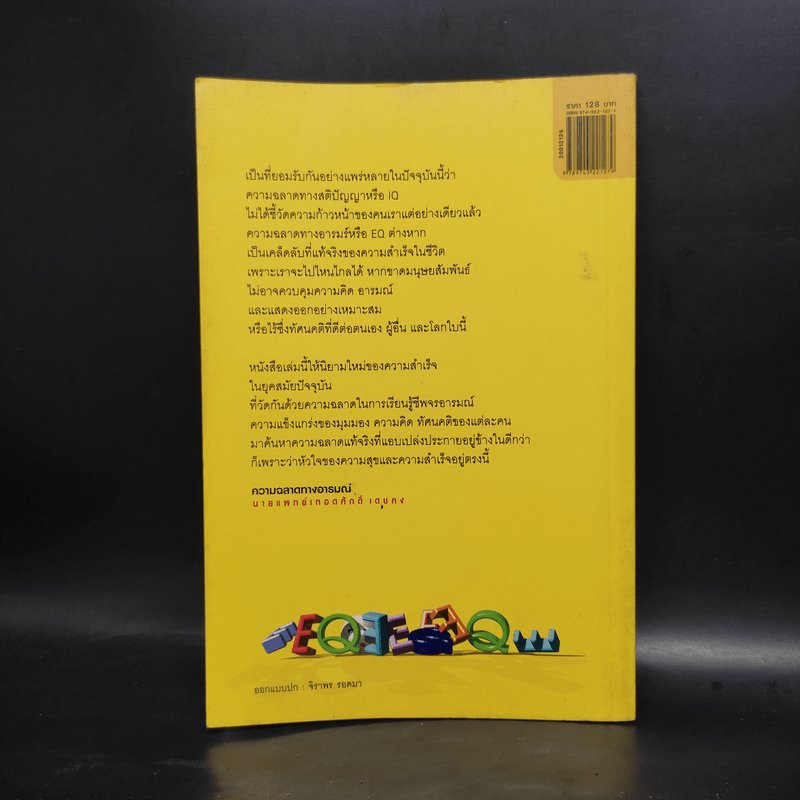 ราคา 128 บาท
20912124
เป็นที่ยอมรับกันอย่างแพร่หลายในปัจจุบันนี้ว่า
ความฉลาดทางสติปัญญาหรือ IQ
ไม่ได้ชี้วัดความก้าวหน้าของคนเราแต่อย่างเดียวแล้ว
ความฉลาดทางอารมร์หรือ EQ ต่างหาก
เป็นเคล็ดลับที่แท้จริงของความสำเร็จในชีวิต
เพราะเราจะไปไหนไกลได้ หากขาดมนุษยสัมพันธ์
ไม่อาจควบคุมความคิด อารมณ์
และแสดงออกอย่างเหมาะสม
หรือไร้ซึ่งทัศนคติที่ดีต่อตนเอง ผู้อื่น และโลกใบนี้
หนังสือเล่มนี้ให้นิยามใหม่ของความสำเร็จ
ในยุคสมัยปัจจุบัน
ที่วัดกันด้วยความฉลาดในการเรียนรู้ชีพจรอารมณ์
ความแข็งแกร่งของมุมมอง ความคิด ทัศนคติของแต่ละคน
มาค้นหาความฉลาดแท้จริงที่แอบเปล่งประกายอยู่ข้างในดีกว่า
ก็เพราะว่าหัวใจของความสุขและความสำเร็จอยู่ตรงนี้
ความฉลาดทางอารมณ์
นายแพทย์เทอดศักดิ์ เดชคง
EQEEEQE
ออกแบบปก : จิราพร รอดมา